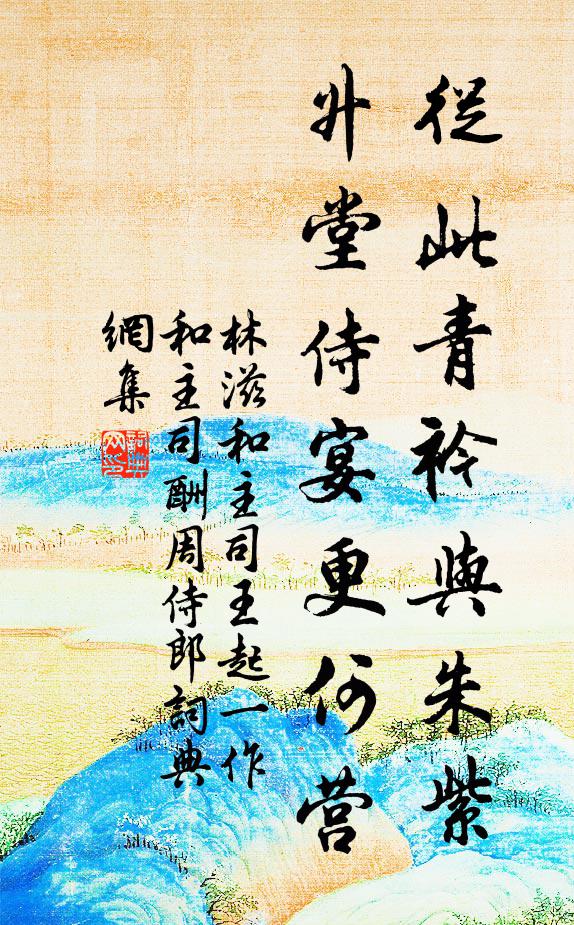 從此青衿與朱紫
升堂侍宴更何營
林滋和主司王起一作
和主司酬周侍郎詞典
網集
詞典
网印